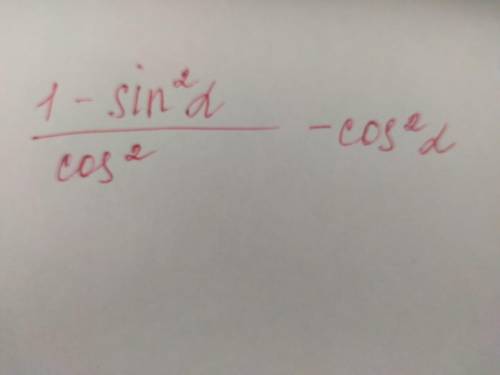 1 - sin²α
cos² - cos²α